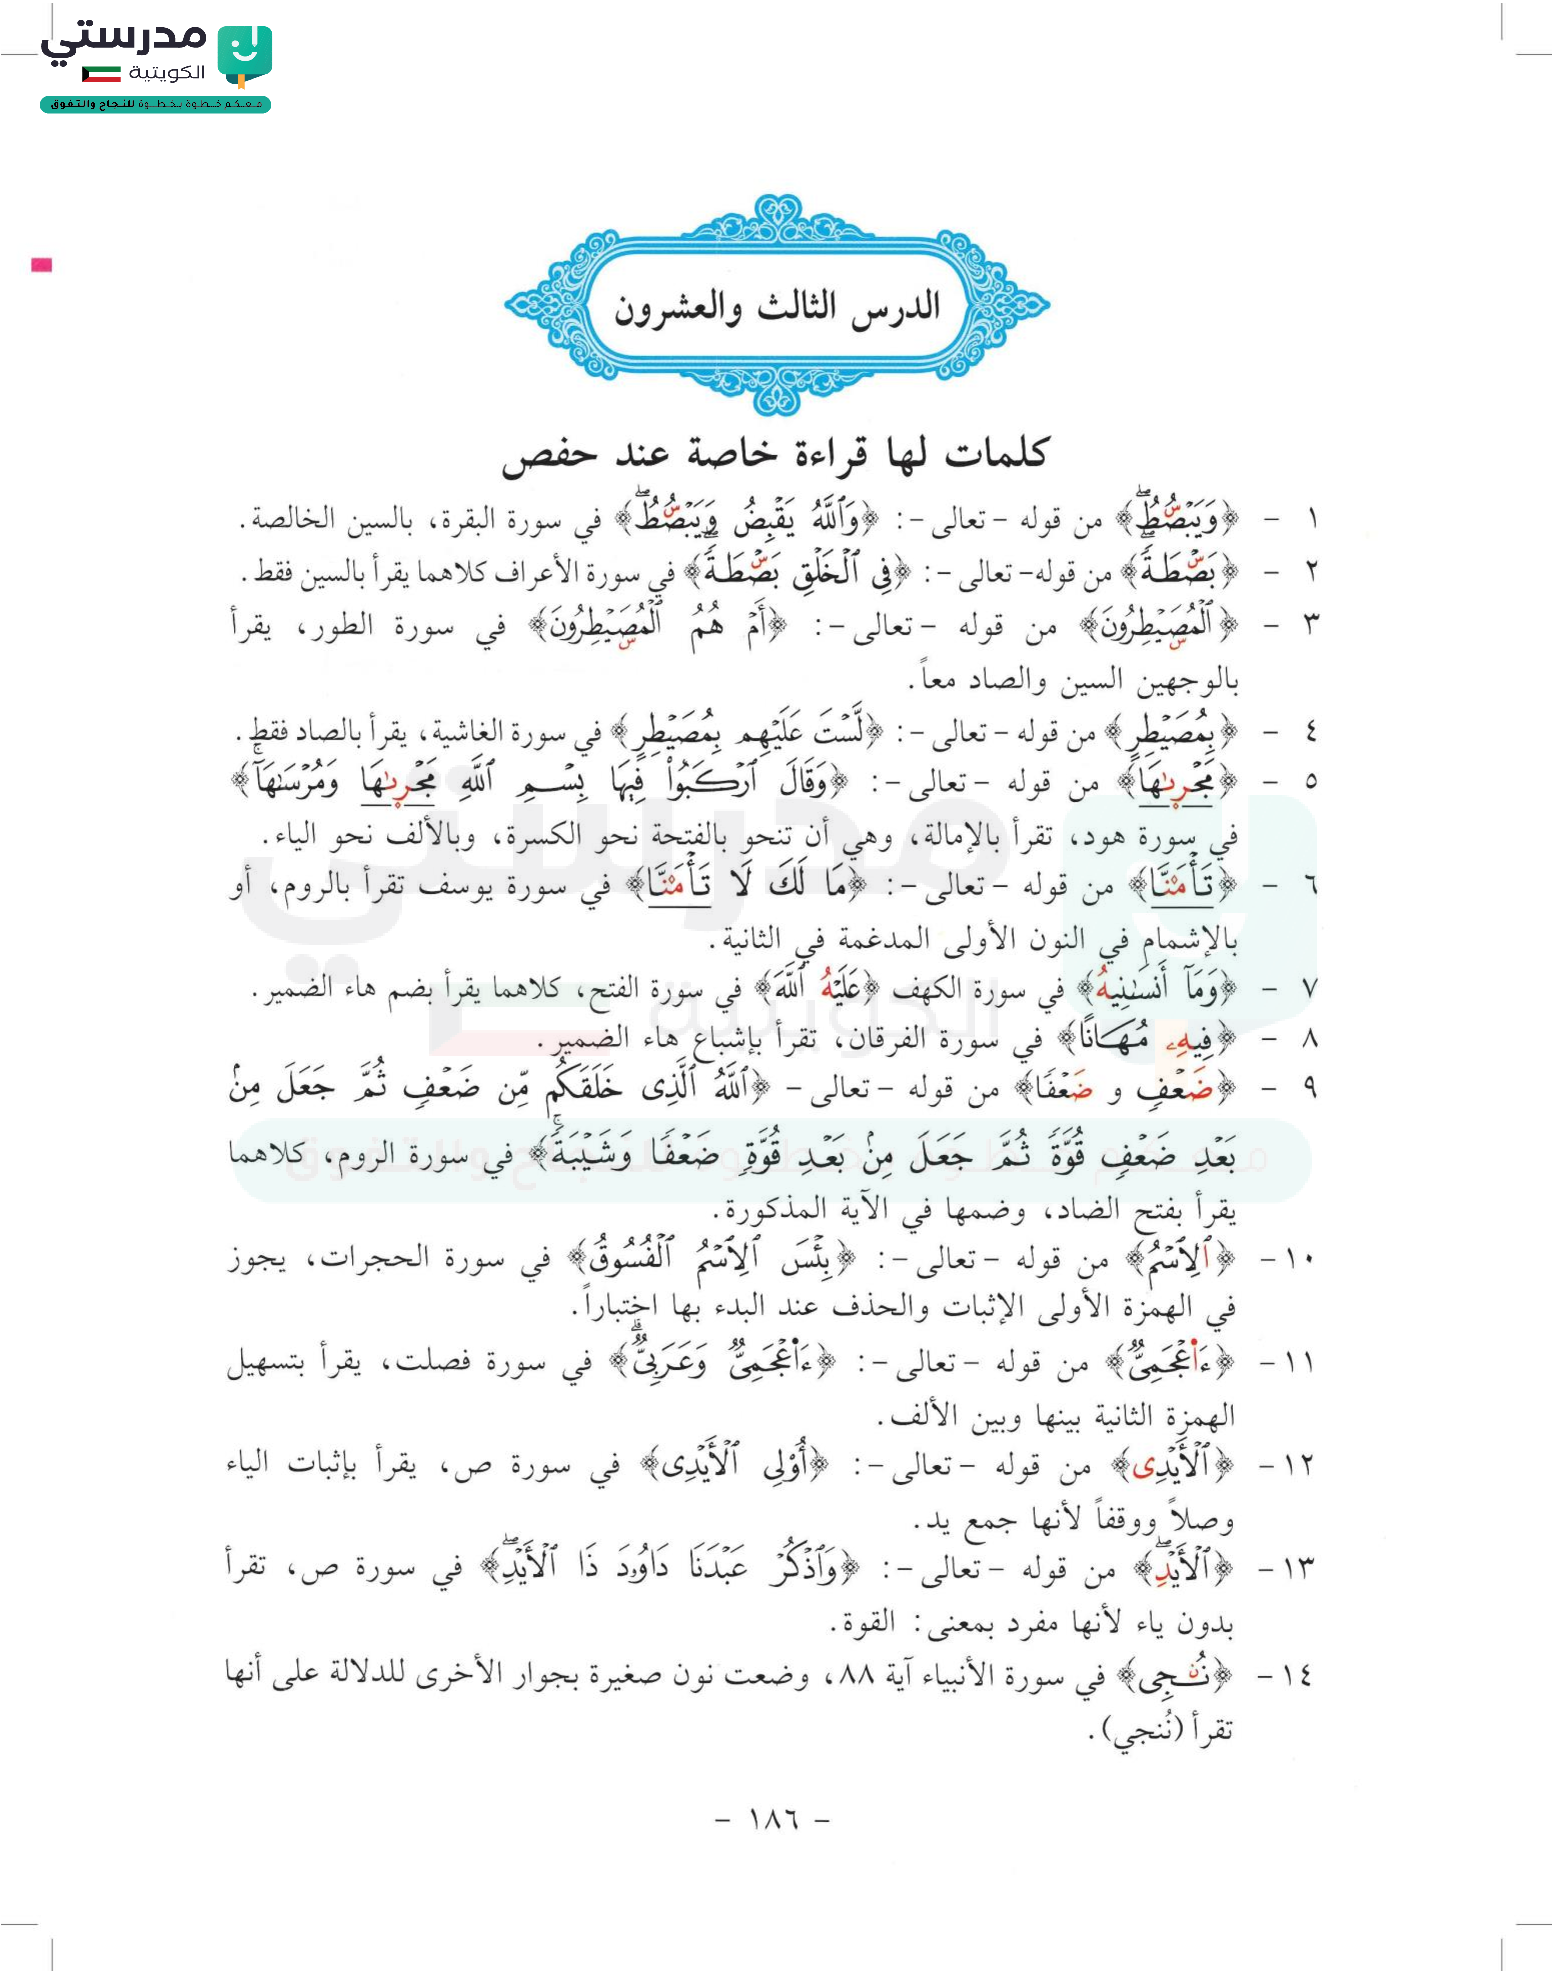 مدرستي
الكويتية
معكم خطوة بخطوة للنجاح والتفوق
الدرس الثالث والعشرون
كلمات لها قراءة خاصة عند حفص
١ - ﴿وَيَبْصُۜطُۖ﴾ من قوله - تعالى -: ﴿وَٱللَّهُ يَقْبِضُ وَيَبْصُۜطُۖ﴾ في سورة البقرة، بالسين الخالصة.
٢ - ﴿بَصْۜطَةًۖ﴾ من قوله- تعالى -: ﴿فِى ٱلْخَلْقِ بَصْۜطَةًۖ﴾ في سورة الأعراف كلاهما يقرأ بالسين فقط.
٣ - ﴿ٱلْمُصَۣيْطِرُونَ﴾ من قوله - تعالى -: ﴿أَمْ هُمُ ٱلْمُصَۣيْطِرُونَ﴾ في سورة الطور، يقرأ
بالوجهين السين والصاد معاً.
٤ - ﴿بِمُصَيْطِرٍ﴾ من قوله - تعالى -: ﴿لَّسْتَ عَلَيْهِم بِمُصَيْطِرٍ﴾ في سورة الغاشية، يقرأ بالصاد فقط.
٥ - ﴿مَجْر۪ىٰهَا﴾ من قوله - تعالى -: ﴿وَقَالَ ٱرْكَبُوا۟ فِيهَا بِسْمِ ٱللَّهِ مَجْر۪ىٰهَا وَمُرْسَىٰهَآۚ﴾
في سورة هود، تقرأ بالإمالة، وهي أن تنحو بالفتحة نحو الكسرة، وبالألف نحو الياء.
٦ - ﴿تَأْمَ۫نَّا﴾ من قوله - تعالى -: ﴿مَا لَكَ لَا تَأْمَ۫نَّا﴾ في سورة يوسف تقرأ بالروم، أو
بالإشمام في النون الأولى المدغمة في الثانية.
٧ - ﴿وَمَآ أَنسَىٰنِيهُ﴾ في سورة الكهف ﴿عَلَيْهُ ٱللَّهَ﴾ في سورة الفتح، كلاهما يقرأ بضم هاء الضمير.
٨ - ﴿فِيهِۦ مُهَانًا﴾ في سورة الفرقان، تقرأ بإشباع هاء الضمير.
٩ - ﴿ضَعْفٍ و ضَعْفًا﴾ من قوله - تعالى - ﴿ٱللَّهُ ٱلَّذِى خَلَقَكُم مِّن ضَعْفٍ ثُمَّ جَعَلَ مِنۢ
بَعْدِ ضَعْفٍ قُوَّةً ثُمَّ جَعَلَ مِنۢ بَعْدِ قُوَّةٍ ضَعْفًا وَشَيْبَةًۚ﴾ في سورة الروم، كلاهما
يقرأ بفتح الضاد، وضمها في الآية المذكورة.
١٠ - ﴿ٱلِٱسْمُ﴾ من قوله - تعالى -: ﴿بِئْسَ ٱلِٱسْمُ ٱلْفُسُوقُ﴾ في سورة الحجرات، يجوز
في الهمزة الأولى الإثبات والحذف عند البدء بها اختباراً.
١١ - ﴿ءَا۬عْجَمِىٌّ﴾ من قوله - تعالى -: ﴿ءَا۬عْجَمِىٌّ وَعَرَبِىٌّۗ﴾ في سورة فصلت، يقرأ بتسهيل
الهمزة الثانية بينها وبين الألف.
١٢ - ﴿ٱلْأَيْدِى﴾ من قوله - تعالى -: ﴿أُو۟لِى ٱلْأَيْدِى﴾ في سورة ص، يقرأ بإثبات الياء
وصلاً ووقفاً لأنها جمع يد.
١٣ - ﴿ٱلْأَيْدِۖ﴾ من قوله - تعالى -: ﴿وَٱذْكُرْ عَبْدَنَا دَاوُۥدَ ذَا ٱلْأَيْدِۖ﴾ في سورة ص، تقرأ
بدون ياء لأنها مفرد بمعنى: القوة.
١٤ - ﴿نُۨجِى﴾ في سورة الأنبياء آية ٨٨، وضعت نون صغيرة بجوار الأخرى للدلالة على أنها
تقرأ (نُنجي).
- ١٨٦ -